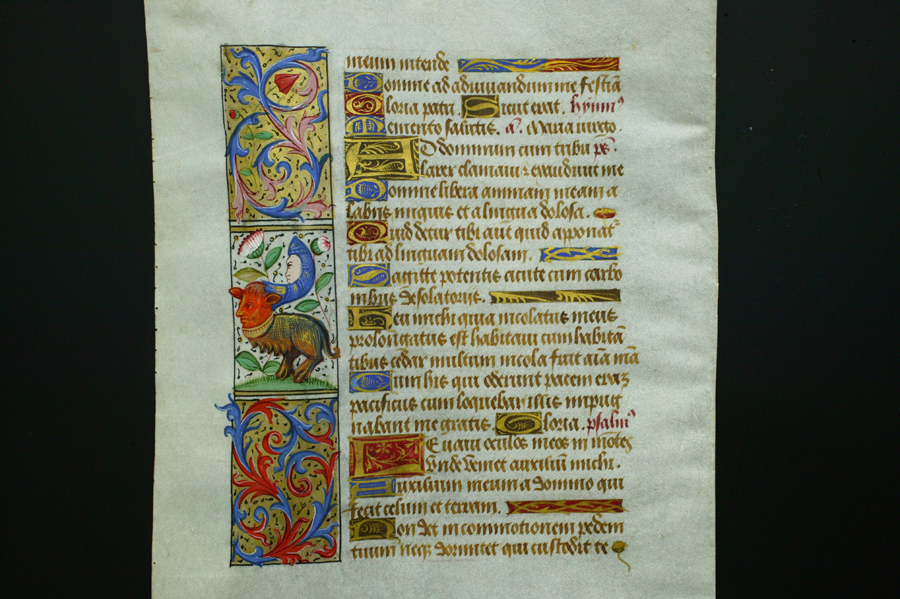 meum intende
Domine ad adiuuandum me festiã
Gloria patri. Sicut erat. hymnꝰ
Memento salutis. añ. Maria uirgo.
AD dominum cum tribu ps.
larer clamaui ⁊ exaudiuit me
Domine libera animam meam a
labiis iniquis et a lingua dolosa.
Quid detur tibi aut quid apponat̃
tibi ad linguam dolosam.
Sagitte potentis acute cum carbo
nibus desolatoriis.
Heu michi quia incolatus meus
prolongatus est habitaui cum habitã
tibus cedar multum incola fuit aĩa mã
Cum his qui oderunt pacem eraꝫ
pacificus cum loquebar illis impug
nabant me gratis. Gloria. psalmꝰ
LEuaui oculos meos in mõtes
Vnde veniet auxilium michi.
Auxilium meum a domino qui
fecit celum et terram.
Non det in commotionem pedem
tuum neqꝫ dormitet qui custodit te